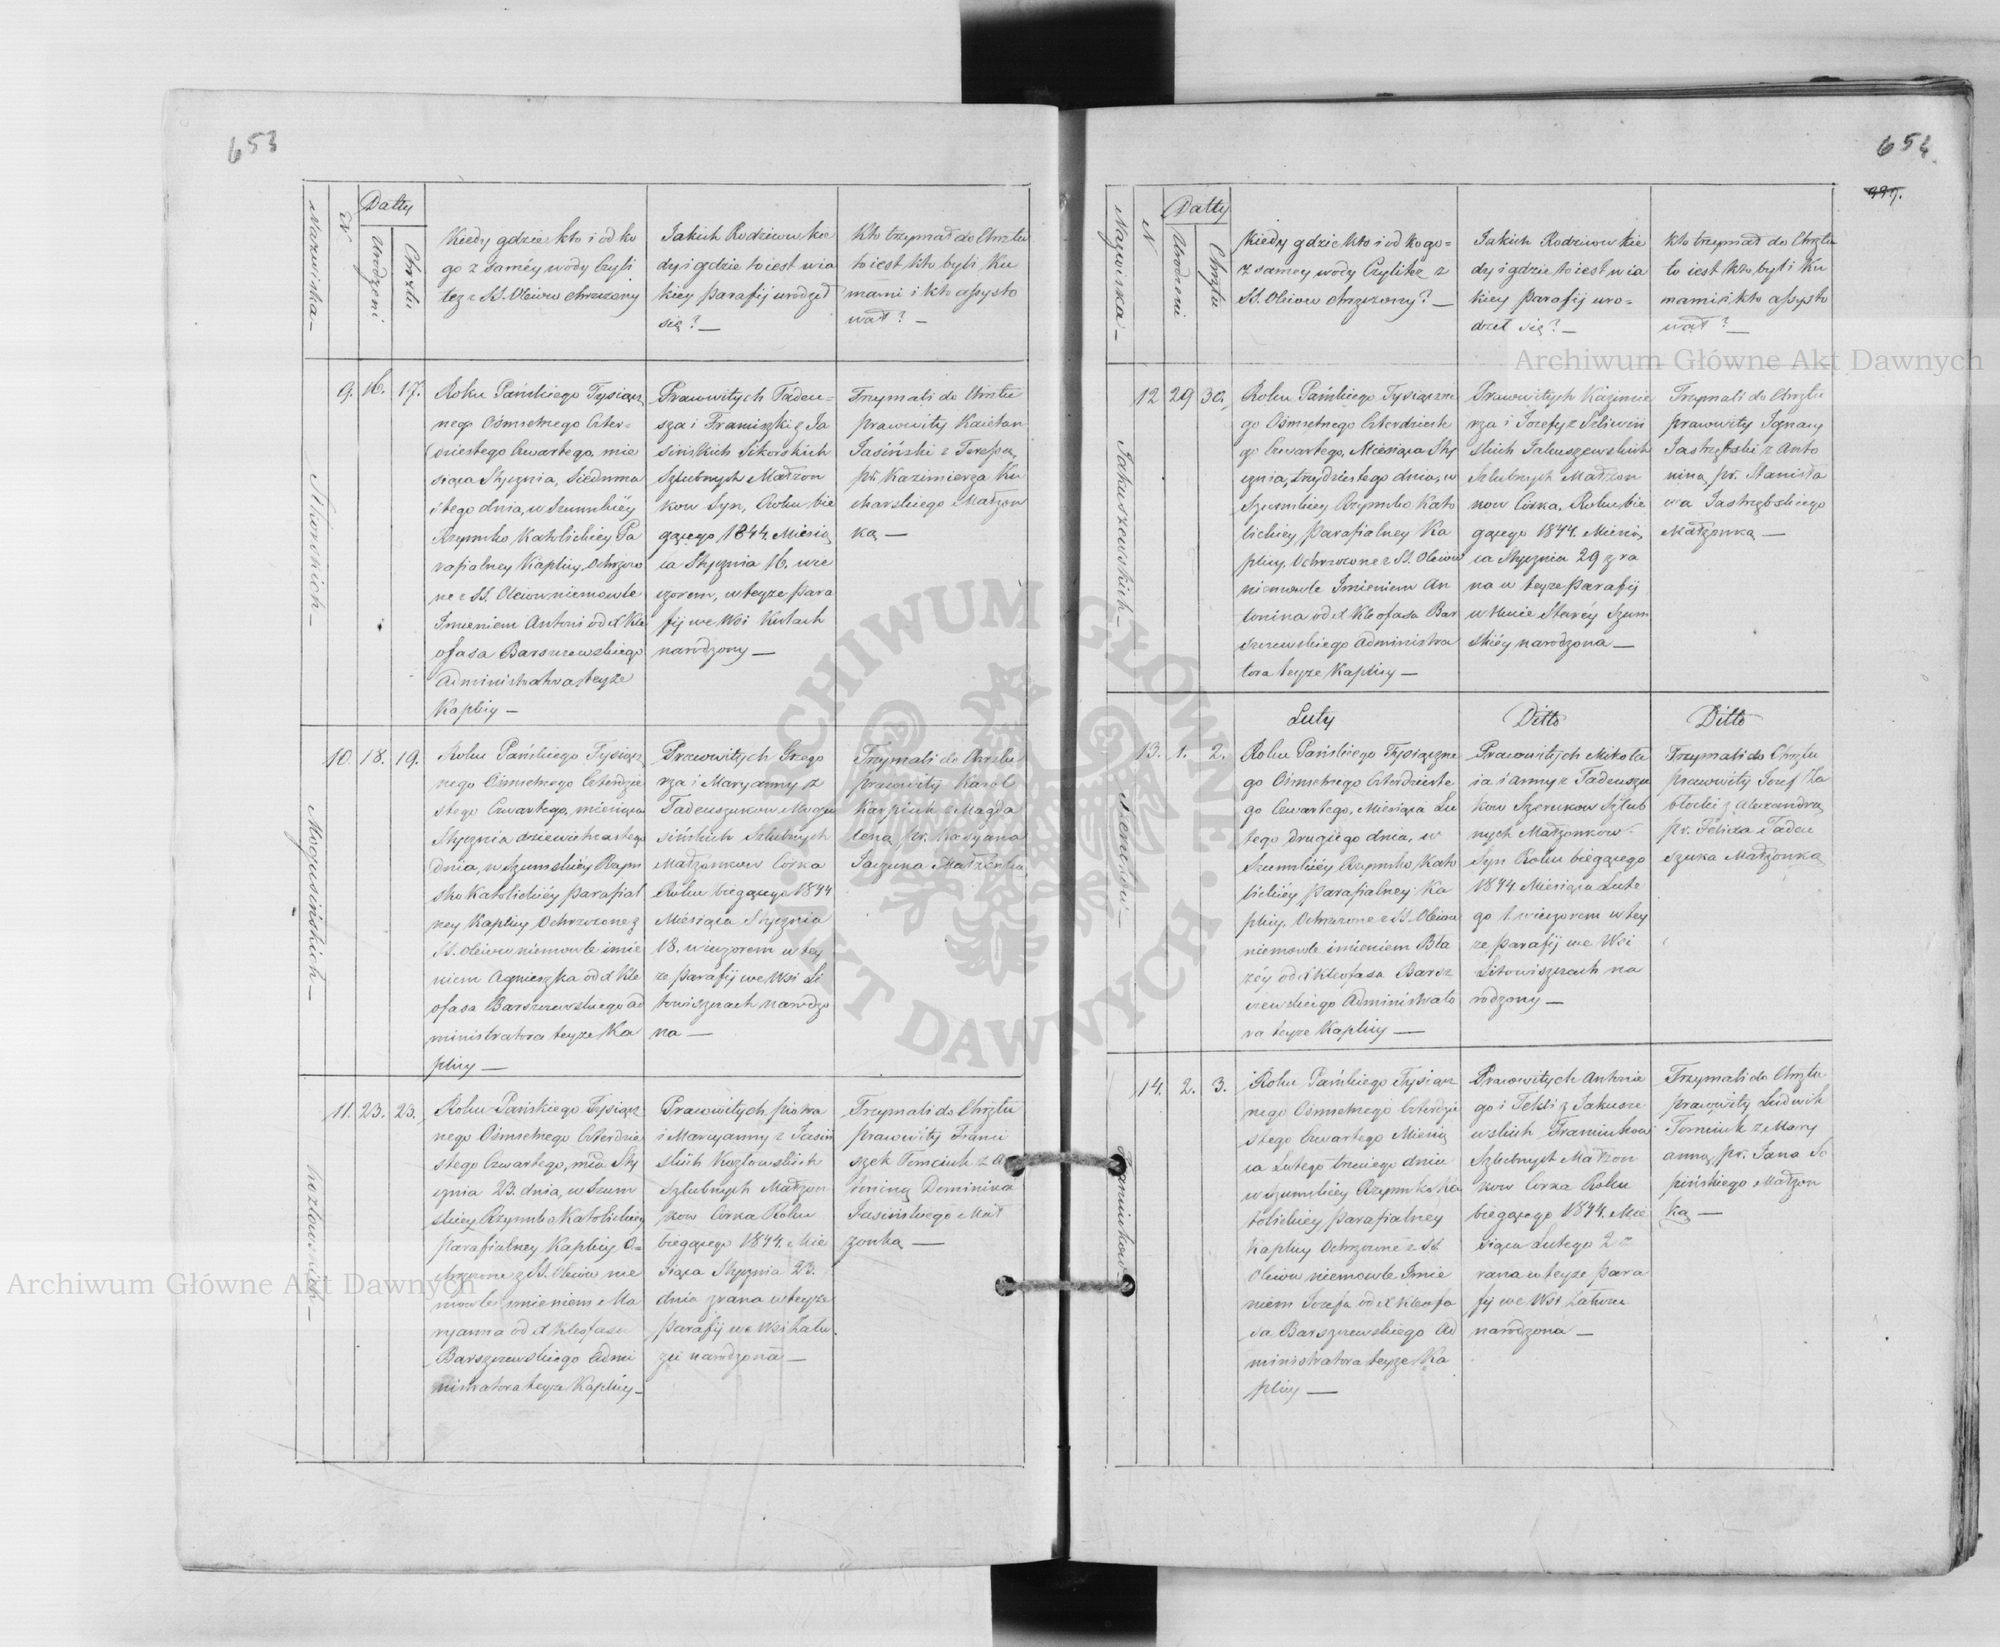 653
Nazwiska —
N
Datty
Urodzeni
Chrztu
Kiedy gdzie kto i od ko
go z saméy wody Czyli
tez z SS. Oleiow ochrzczony
Jakich Rodzicow kie
dy i gdzie to iest w ia
kiey Parafij urodzeł
się? —
Kto trzymał do Chrztu
to iest kto byli Ku
mami i kto assysto
wał? —
Sikorskich —
9. 16. 17.
Roku Pańskiego Tysiącz
nego Ośmsetnego Czter-
dziestego Czwartego, mie
siąca Stycznia, Siedmna
stego dnia, w Szumskiéy
Rzymsko Katholickiey Pa
rafialney Kaplicy, Ochrzczo
ne z SS. Oleiow niemowle
Imieniem Antoni od X Kle
ofasa Barszczewskiego
Administratora teyże
Kaplicy —
Prawowitych Tadeu-
sza i Franciszki z Ja
sińskich Sikorskich
Szlubnych Małżon
kow Syn, Roku bie
gącego 1844 Miesią
ca Stycznia 16. wie
czorem, w teyze Para
fij we Wsi Kutach
narodzony —
Trzymali do Chrztu
prawowity Kaietan
Jasiński z Teressą,
pr. Kazimierza Ku
charskiego Małżon
ką —
Mogusińskich —
10. 18. 19.
Roku Pańskiego Tysiącz
nego Ośmsetnego Czterdzie
stego Czwartego, miesiąca
Stycznia dziewietnastego
dnia, w Szumskiéy Rzym
sko Katolickiéy Parafial
ney Kaplicy Ochrzczone z
SS. Oleiow niemowle imie
niem Agnieszka od X Kle
ofasa Barszczewskiego Ad
ministratora teyze Ka
plicy —
Prawowitych Grzego
rza i Maryanny z
Tadeuszukow Mogu
sińskich Szlubnych
Małżonkow Corka
Roku biegącego 1844
Miesiąca Stycznia
18. wieczorem w tey
ze Parafij we Wsi Li
towiszczach narodzo
na —
Trzymali do Chrztu
prawowity Karol
Karpiuk z Magda
leną, pr. Kasyana
Saczuka Małżonką
Kozłowskich —
11. 23. 23.
Roku Pańskiego Tysiącz
nego Ośmsetnego Czterdzie
stego Czwartego, mca Sty
cznia 23. dnia, w Szum
skiey Rzymsko Katolickiey
Parafialney Kaplicy O=
chrzczone z SS. Oleiow nie
mowle imieniem Ma
ryanna od X Kleofasa
Barszczewskiego Admi
nistratora teyze Kaplicy —
Prawowitych Piotra
i Maryanny z Jasiń
skich Kozłowskich
Szlubnych Małżon
kow Corka Roku
biegącego 1844. Mie
siąca Stycznia 23.
dnia zrana w teyze
Parafij we Wsi Zału
zu narodzona —
Trzymali do Chrztu
prawowity Franci
szek Tomciuk z An
toniną Dominika
Jasińskiego Mał
zonką —
654
997.
Nazwiska —
N
Datty
Urodzeni
Chrztu
Kiedy gdzie kto i od kogo=
z samey wody Czylitez z
SS. Oleiow ochrzczony? —
Jakich Rodzicow kie
dy i gdzie to iest w ia
kiey Parafij uro=
dzeł się? —
Kto trzymał do Chrztu
to iest kto byli Ku
mami i kto assysto
wał? —
Jakuszewskich —
12 29 30.
Roku Pańskiego Tysiączne
go Ośmsetnego Czterdzieste
go Czwartego, Miesiąca Sty
cznia, trzydziestego dnia, w
Szumskiey Rzymsko Kato
lickiey Parafialney Ka
plicy, Ochrzczone z SS. Oleiow
niemowle Imieniem An
tonina od X Kleofasa Bar
szczewskiego Administra
tora teyze Kaplicy —
Prawowitych Kazimie
rza i Jozefy z Szliwiń
skich Jakuszewskich
Szlubnych Małżon
kow Corka, Roku bie
gącego 1844. Miesią
ca Stycznia 29 z ra
na w teyze Parafij
w Hucie Staréy Szum
skiéy narodzona —
Trzymali do Chrztu
prawowity Ignacy
Jastrzębski z Anto
niną, pr. Stanisła
wa Jastrzębskiego
Małżonką —
Szerukow —
Luty
Ditto
Ditto
13. 1. 2.
Roku Pańskiego Tysiączne
go Ośmsetnego Czterdzieste
go Czwartego, Miesiąca Lu
tego drugiego dnia, w
Szumskiéy Rzymsko Kato
lickiéy Parafialney Ka
plicy, Ochrzczone z SS. Oleiow
niemowle imieniem Bła
zéy od X Kleofasa Barsz
czewskiego Administrato
ra teyze Kaplicy —
Prawowitych Mikoła
ia i Anny z Tadeuszu
kow Szerukow Szlub
nych Małżonkow
Syn Roku biegącego
1844 Miesiąca Lute
go 1 wieczorem w tey
ze Parafij we Wsi
Litowiszczach na
rodzony —
Trzymali do Chrztu
prawowity Jozef Za
błocki z Alexandrą
pr. Felixa Tadeu
szuka Małżonką
Franciukow
14. 2. 3.
Roku Pańskiego Tysiącz
nego Ośmsetnego Czterdzie
stego Czwartego Miesią
ca Lutego trzeciego dnia
w Szumskiey Rzymsko Ka
tolickiey Parafialney
Kaplicy Ochrzczone z SS.
Oleiow niemowle Imie
niem Jozefa od X Kleofa
sa Barszczewskiego Ad
ministratora teyze Ka
plicy —
Prawowitych Antonie
go i Tekli z Jakusze
wskich Franciukow
Szlubnych Małżon
kow Corka Roku
biegącego 1844. Mie
siąca Lutego 2
rana w teyze Para
fij we Wsi Załuzu
narodzona —
Trzymali do Chrztu
prawowity Ludwik
Tomciuk z Mary
anną, pr. Jana So
pińskiego Małżon
ką —
Archiwum Główne Akt Dawnych
Archiwum Główne Akt Dawnych
ARCHIWUM GŁÓWNE AKT DAWNYCH